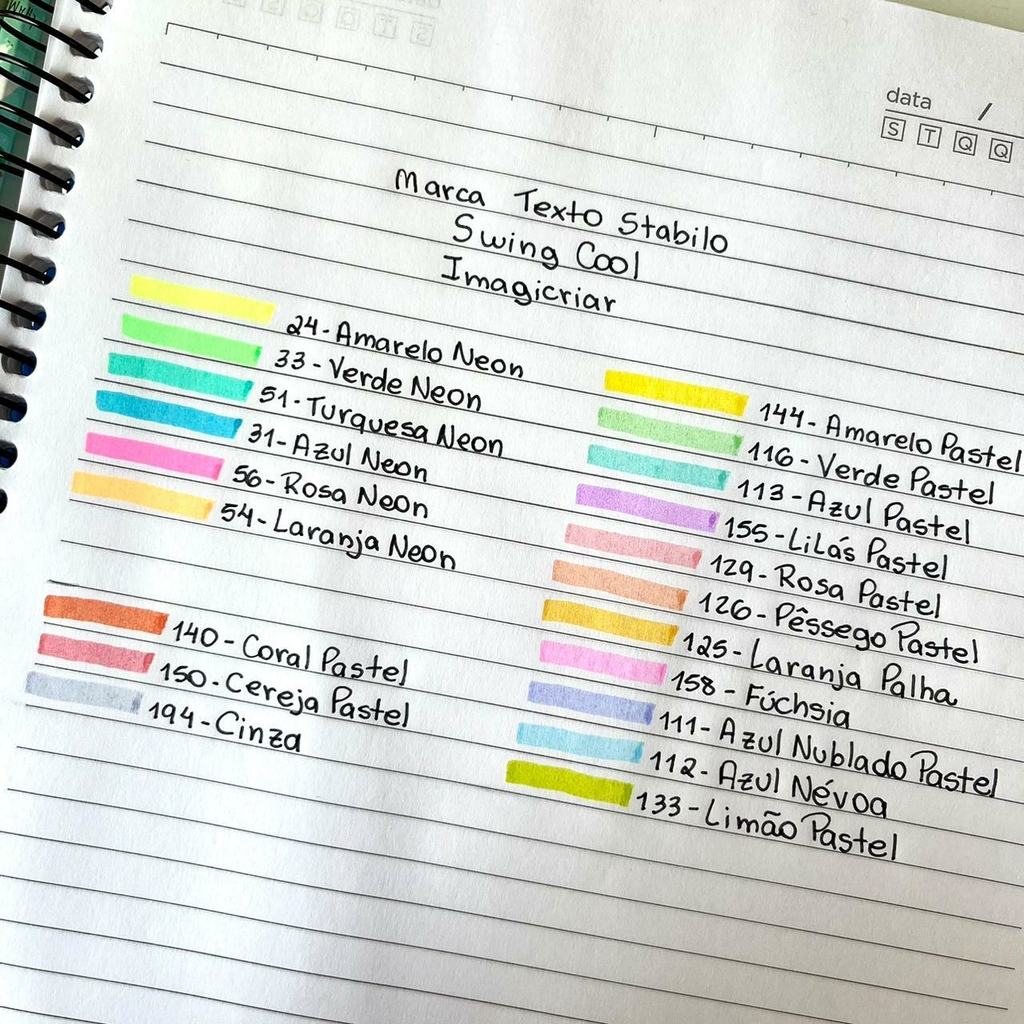 data /
S T Q Q
Marca Texto Stabilo
Swing Cool
Imagicriar
24-Amarelo Neon
33-Verde Neon
51-Turquesa Neon
31-Azul Neon
56-Rosa Neon
54-Laranja Neon
140-Coral Pastel
150-Cereja Pastel
194-Cinza
144-Amarelo Pastel
116-Verde Pastel
113-Azul Pastel
155-Lilás Pastel
129-Rosa Pastel
126-Pêssego Pastel
125-Laranja Palha
158-Fúchsia
111-Azul Nublado Pastel
112-Azul Névoa
133-Limão Pastel